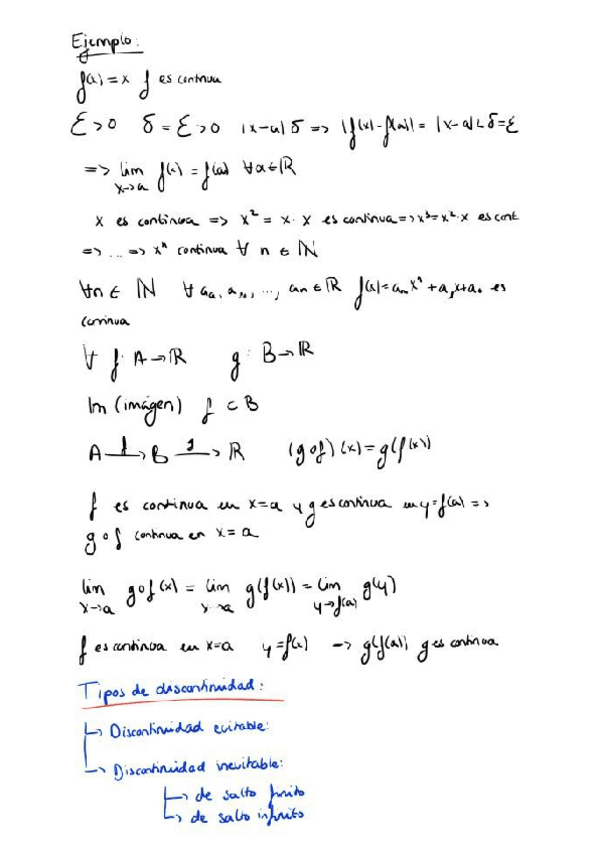 Ejemplo:
f(x) = x f es continua
ℰ > 0 δ = ℰ > 0 |x-a| δ => |f(x) - f(a)| = |x-a| < δ = ℰ
=> lim f(x) = f(a) ∀a ∈ ℝ
x→a
x es continua => x² = x · x es continua => x³ = x² · x es cont
=> ... => xⁿ continua ∀ n ∈ ℕ
∀n ∈ ℕ ∀ a₀, a₁, ..., an ∈ ℝ f(x) = anxⁿ + a₁x + a₀ es
continua
∀ f: A → ℝ g: B → ℝ
Im (imágen) f ⊂ B
A –f→ B –g→ ℝ (g∘f)(x) = g(f(x))
f es continua en x=a y g es continua en y=f(a) =>
g∘f continua en x = a
lim g∘f(x) = lim g(f(x)) = lim g(y)
x→a x→a y→f(a)
f es continua en x=a y=f(x) –> g(f(a)), g es continua
Tipos de discontinuidad:
↳ Discontinuidad evitable:
↳ Discontinuidad inevitable:
↳ de salto finito
↳ de salto infinito